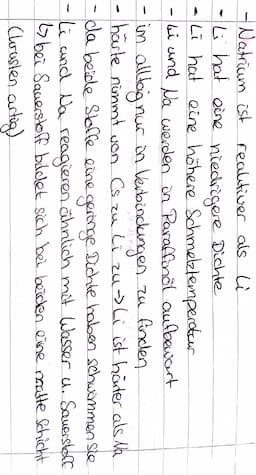 - Natrium ist reaktiver als Li
- Li hat eine niedrigere Dichte
- Li hat eine höhere Schmelztemperatur
- Li und Na werden in Paraffinöl aufbewart
- im alltag nur in Verbindungen zu finden
- härte nimmt von Cs zu Li zu -> Li ist härter als Na
- da beide Stoffe eine geringe Dichte haben schwimmen sie
- Li und Na reagieren ähnlich mit Wasser u. Sauerstoff
↳ bei Sauerstoff bildet sich bei beiden eine matte Schicht
(krusten artig)